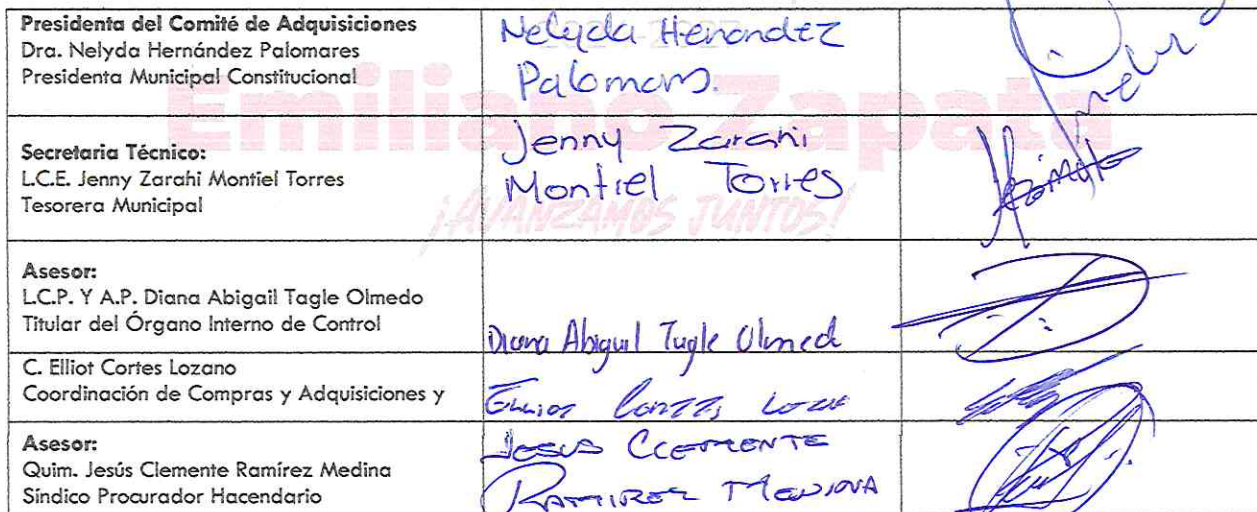 Presidenta del Comité de Adquisiciones
Dra. Nelyda Hernández Palomares
Presidenta Municipal Constitucional
Nelyda Henandez
Palomars.
Secretaria Técnico:
L.C.E. Jenny Zarahi Montiel Torres
Tesorera Municipal
Jenny Zarahi
Montiel Torres
Emiliano Zapata
¡AVANZAMOS JUNTOS!
Asesor:
L.C.P. Y A.P. Diana Abigail Tagle Olmedo
Titular del Órgano Interno de Control
Diana Abigail Tagle Olmed
C. Elliot Cortes Lozano
Coordinación de Compras y Adquisiciones y
Elliot Cortes
Asesor:
Quim. Jesús Clemente Ramírez Medina
Síndico Procurador Hacendario
JESUS CLEMENTE
RAMIREZ